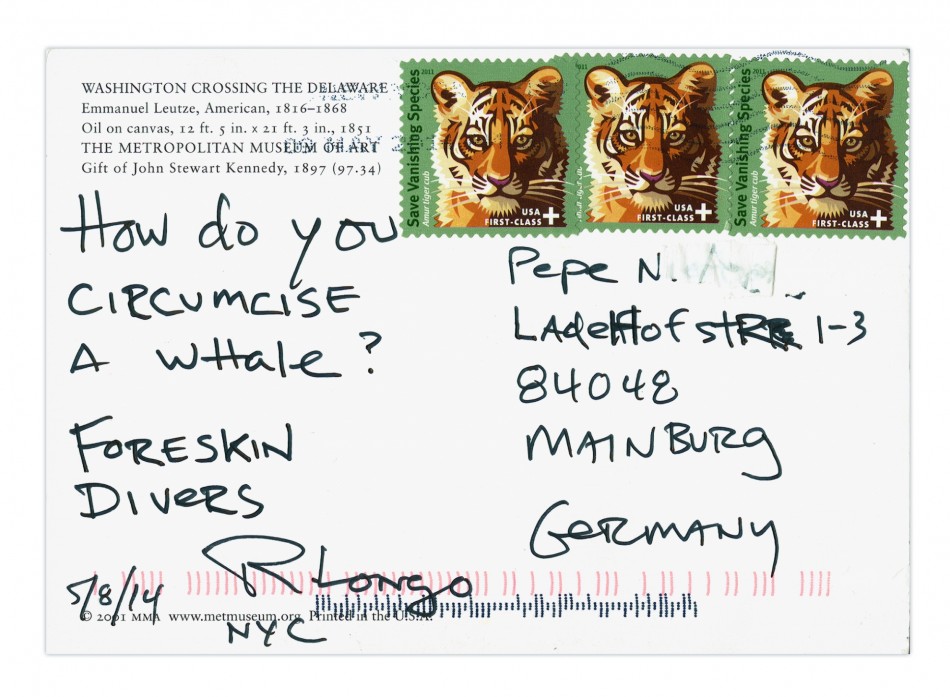 WASHINGTON CROSSING THE DELAWARE
Emmanuel Leutze, American, 1816–1868
Oil on canvas, 12 ft. 5 in. x 21 ft. 3 in., 1851
THE METROPOLITAN MUSEUM OF ART
Gift of John Stewart Kennedy, 1897 (97.34)
2011
Save Vanishing Species
Amur tiger cub
USA
FIRST-CLASS+
2011
USA
FIRST-CLASS+
2011
Save Vanishing Species
Amur tiger cub
USA
FIRST-CLASS+
How do you
CIRCUMCISE
A WHale?
FORESKIN
DIVERS
R Longo
5/8/14
NYC
Pepe N.
LAdeHof STR 1-3
84048
MAINBURg
GERMANY
© 2001 MMA www.metmuseum.org Printed in the U.S.A.